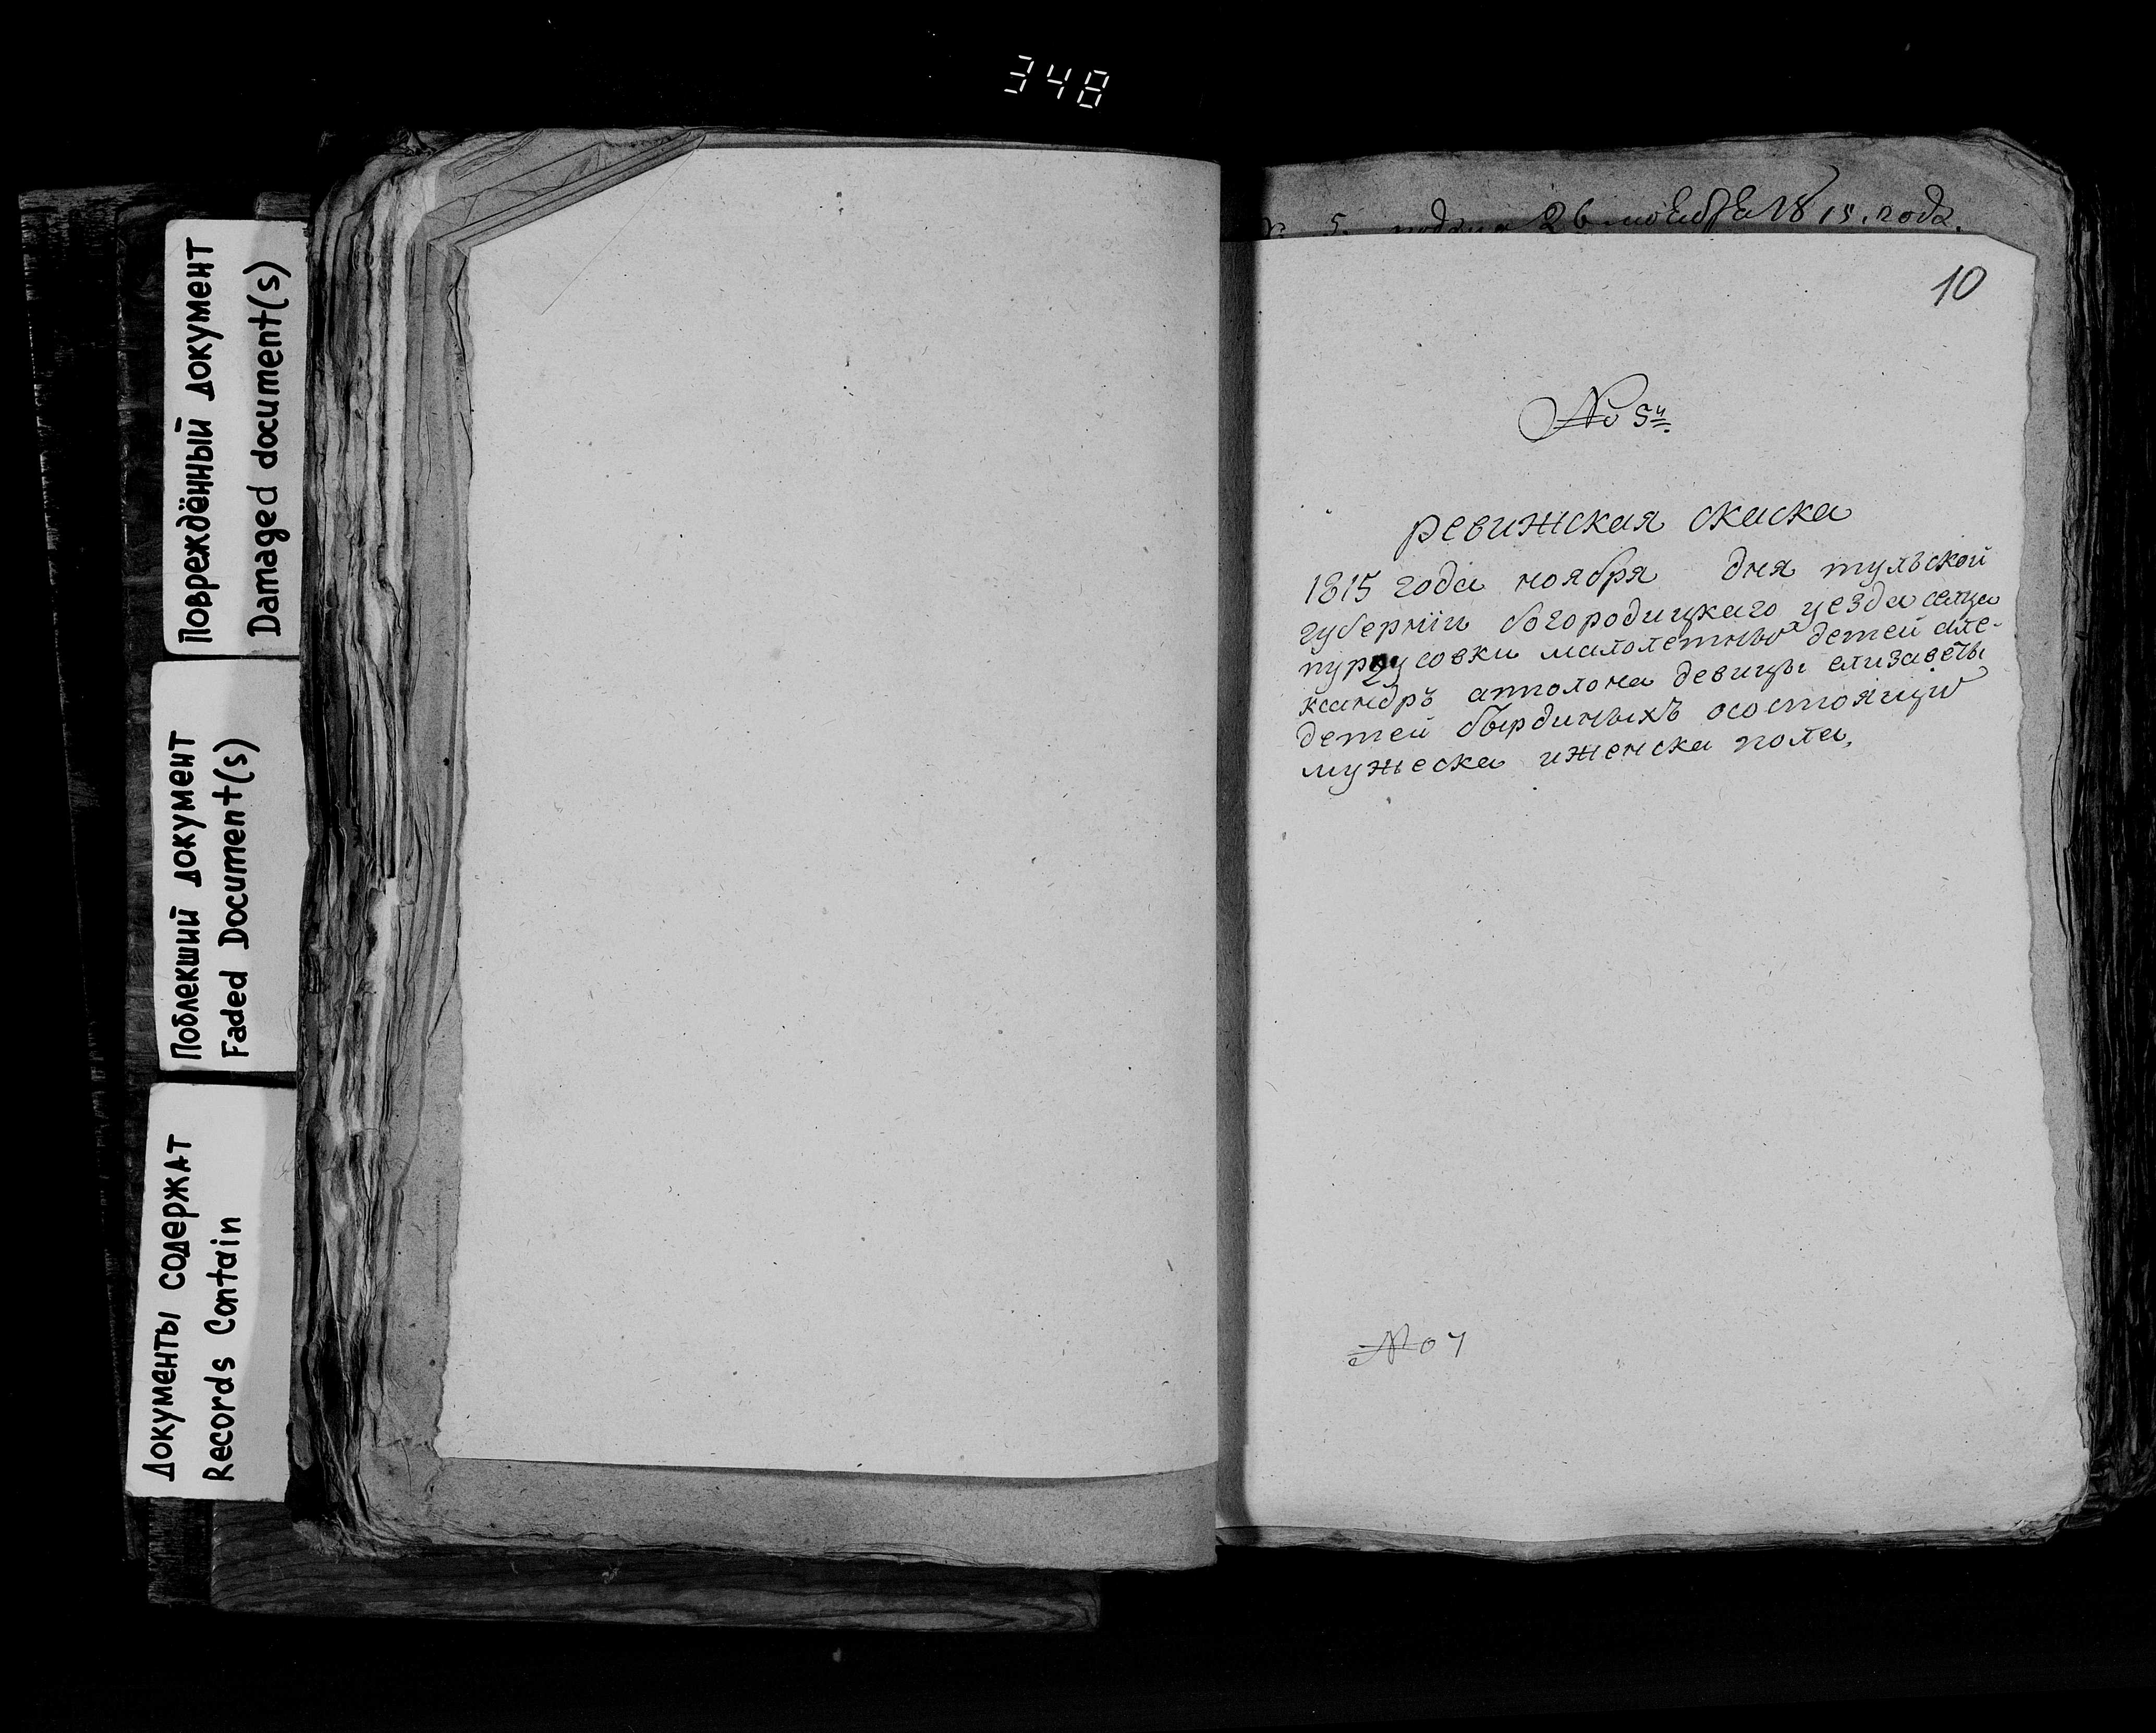 348
Повреждённый документ
Damaged document(s)
Поблекший документ
Faded Document(s)
Документы содержат
Records Contain
5. подана 26 ноября 1815. года.
10
№ 5й
ревижская скаска
1815 года ноября дня тульской
губернiи богородицкаго уезда селца
малолетныхъ детей але-
ксандръ апполона девицы елизаветы
детей бырдиныхъ осостоящих
мужеска иженска пола.
№ 4